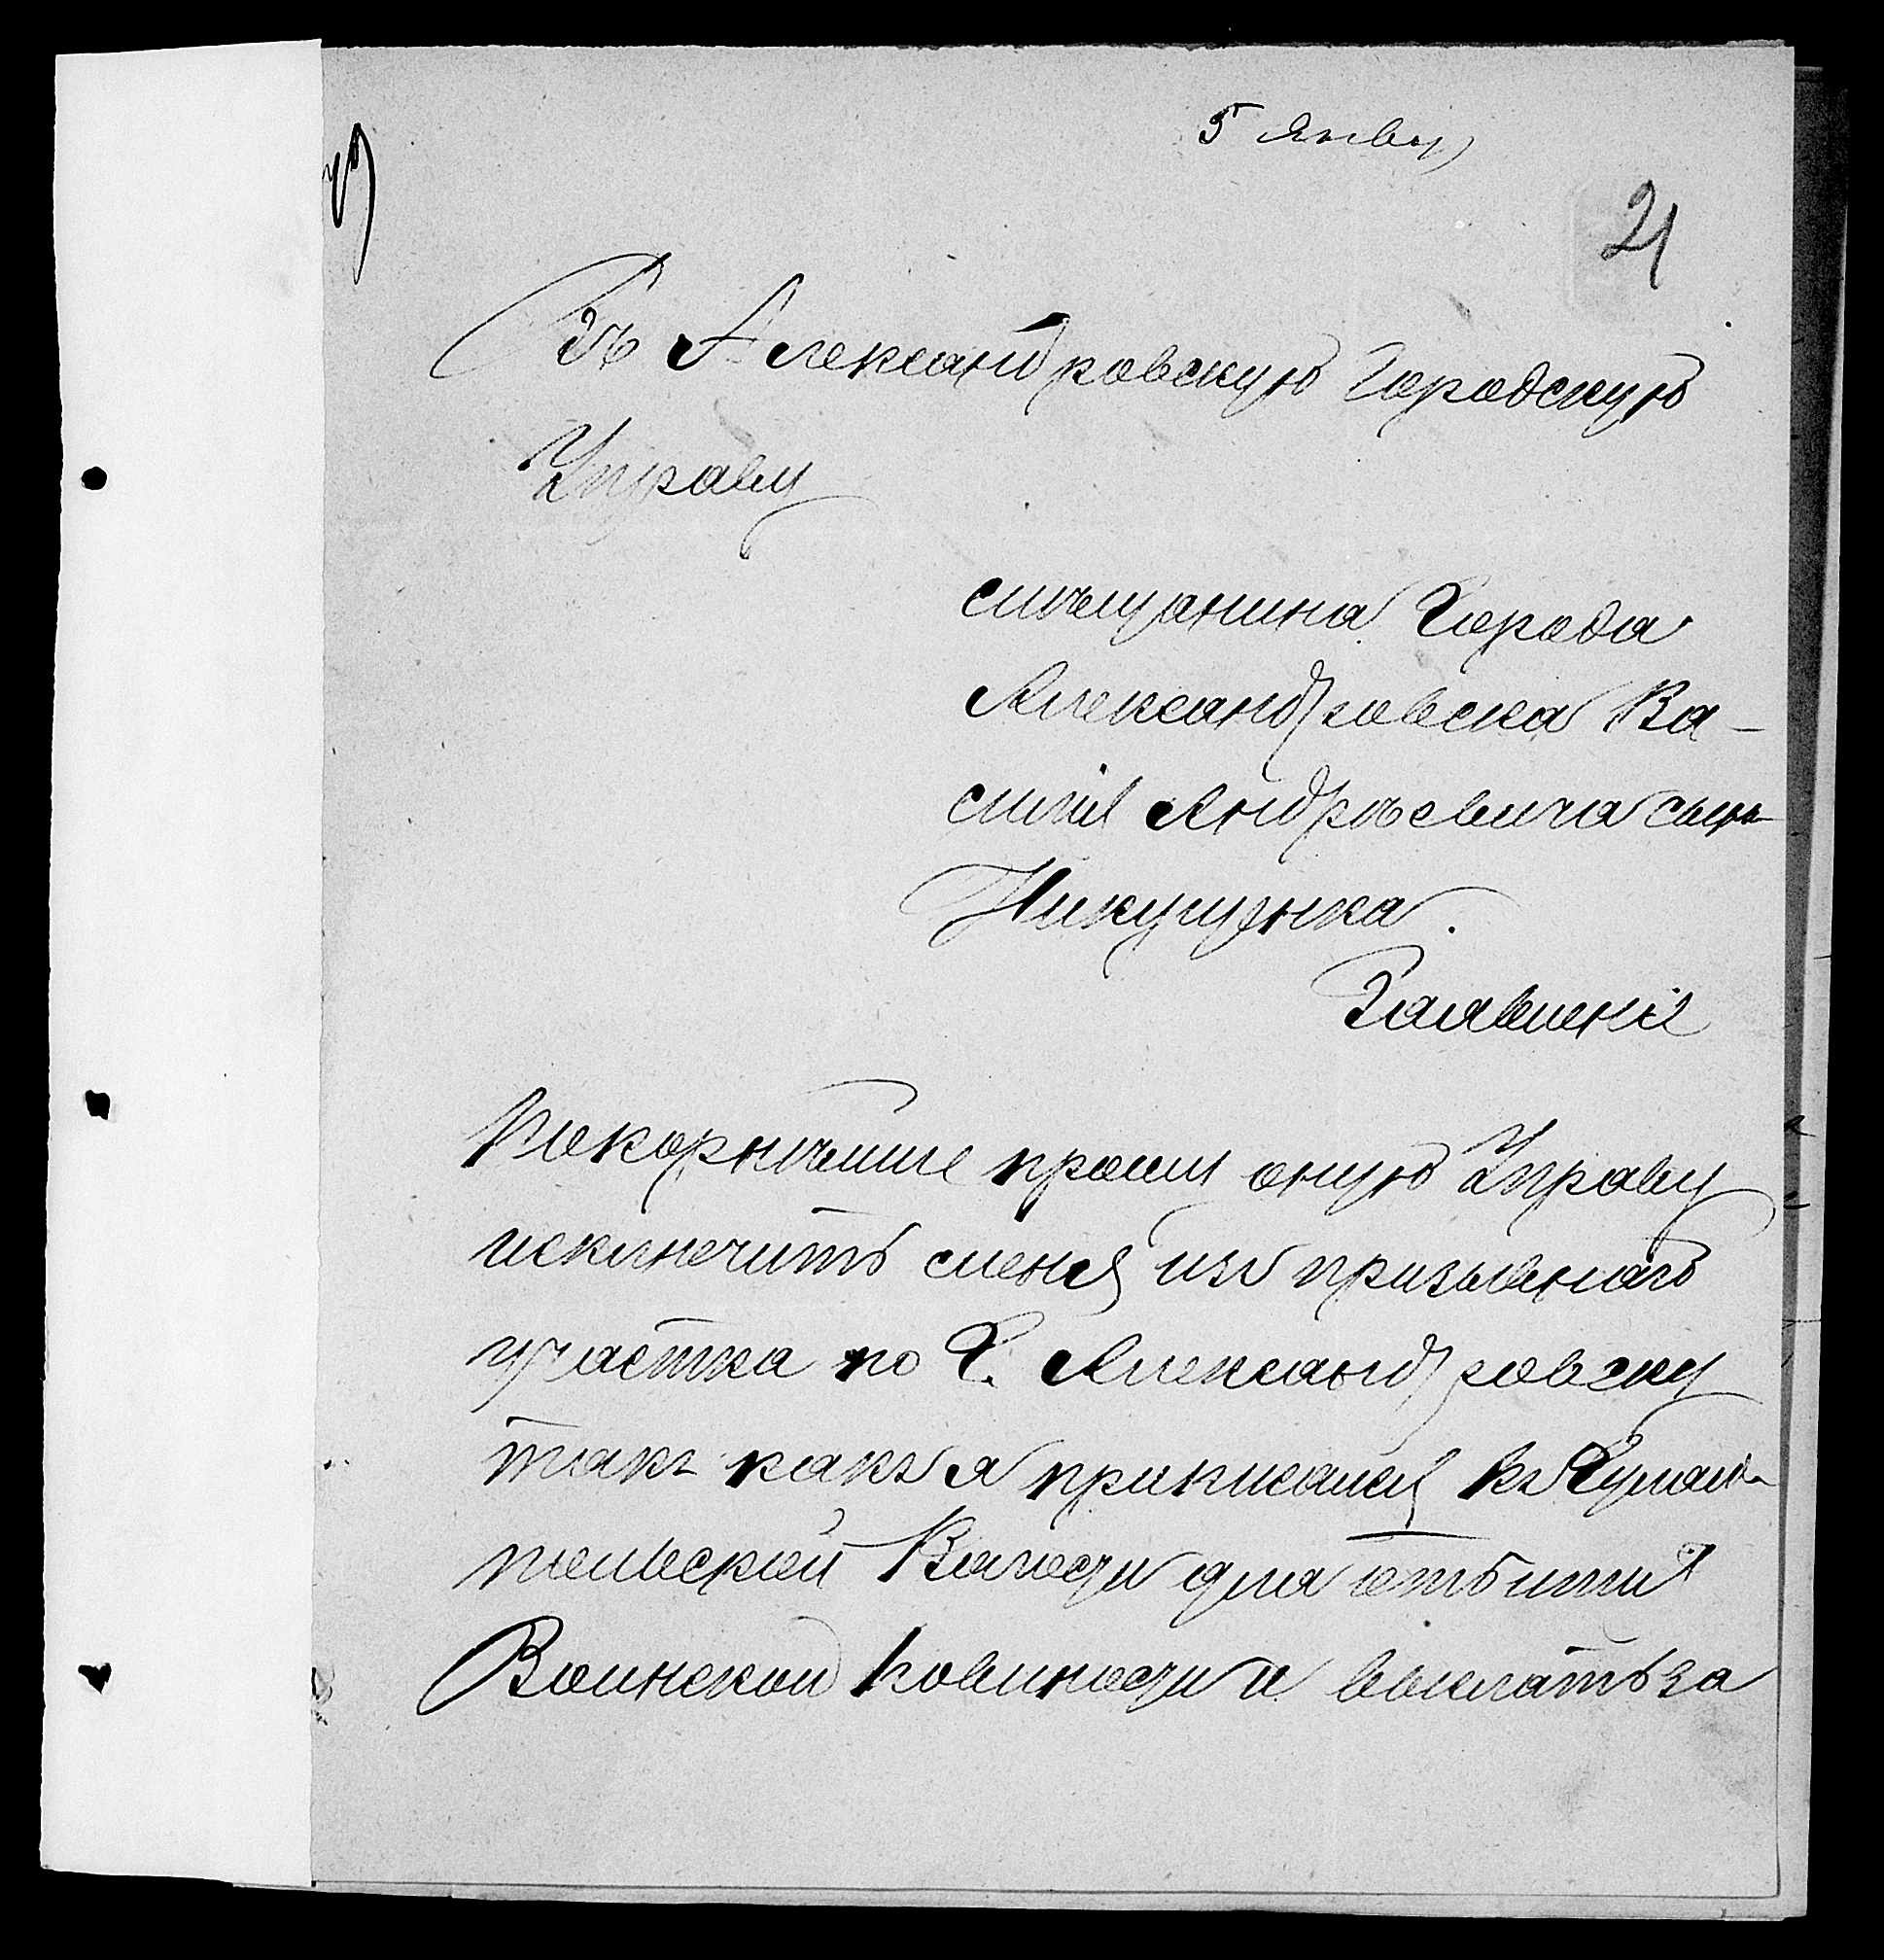 5 Январ
21
Въ Александровскую Городскую
Управу
мѣщанина Города
Александровска Ва-
силия Андрѣевича сына
Никущенка.
Заявление
Покорнѣише прошу оную Управу
исключить меня изъ призывнаго
участка по Г. Александровску
такъ какъ я приписался къ Гуляй-
польской Волости для отбития
Воинской повиности и выслать за